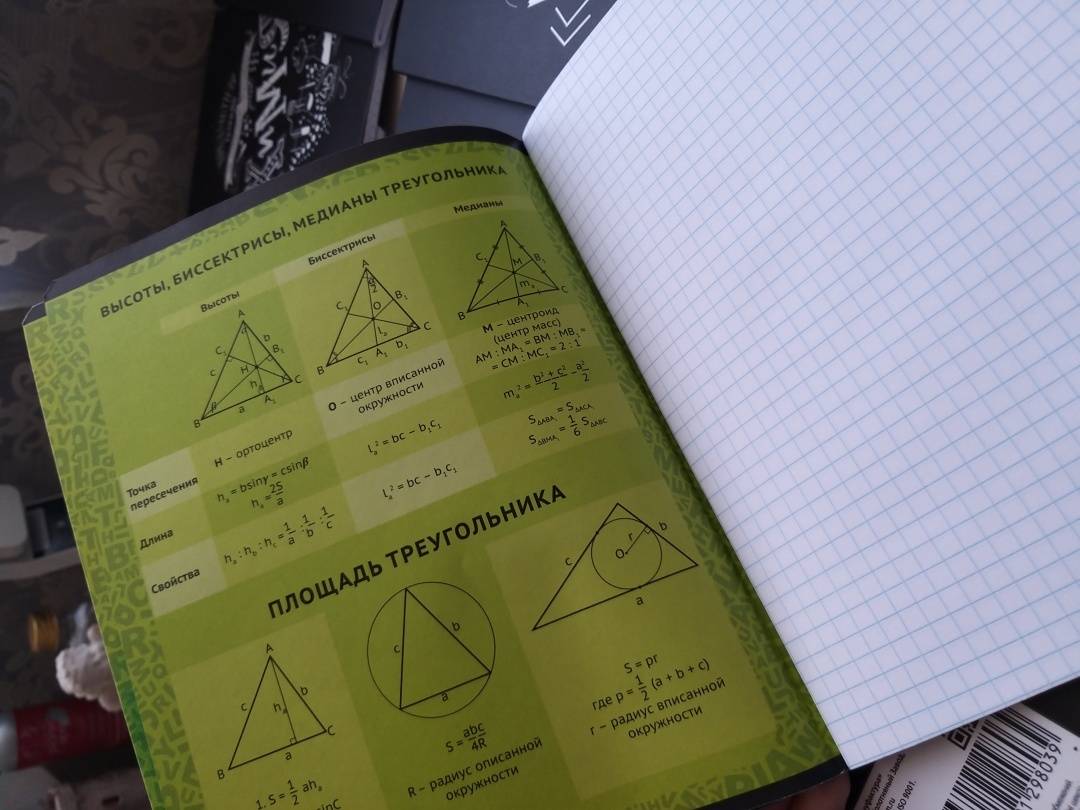 ВЫСОТЫ, БИССЕКТРИСЫ, МЕДИАНЫ ТРЕУГОЛЬНИКА
Высоты
Биссектрисы
Медианы
Точка
пересечения
H – ортоцентр
O – центр вписанной
окружности
M – центроид
(центр масс)
AM : MA₁ = BM : MB₁ =
= CM : MC₁ = 2 : 1
Длина
hₐ = bsinγ = csinβ
hₐ = 2S/a
lₐ² = bc – b₁c₁
mₐ² = (b² + c²)/2 – a²/2
Свойства
hₐ : h_b : h_c = 1/a : 1/b : 1/c
lₐ² = bc – b₁c₁
S△ABA₁ = S△ACA₁
S△BMA₁ = 1/6 S△ABC
ПЛОЩАДЬ ТРЕУГОЛЬНИКА
A
c
b
hₐ
B
a
C
1. S = 1/2 ahₐ
sinC
c
b
a
S = abc/4R
R – радиус описанной
окружности
c
b
O
r
a
S = pr
где p = 1/2 (a + b + c)
r – радиус вписанной
окружности
298039